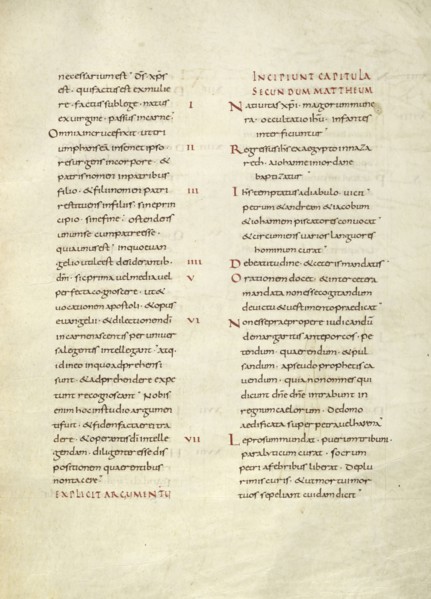 necessarium est · ds xps
est · qui factus est ex mulie
re · factus sub lege · natus
ex virgine · passus in carne ·
Omnia in cruce fixit · ut tri
umphans ea in semet ipso
resurgens in corpore · &
patris nomen in patribus
filio · & filii nomen patri
restituens in filiis · sine prin
cipio · sine fine · ostendens
unum se cum patre esse ·
quia unus est · in quo evan
gelio utile est desiderantib ·
dm · sic prima vel media vel
perfecta cognoscere · ut &
vocationem apostoli · & opus
evangelii · & dilectionem di
in carne nascentis per univer
sa legentes intellegant · atq ·
id in eo in quo adprehensi
sunt · & adprehendere expe
tunt recognoscant · Nobis
enim hoc in studio argumen
ti fuit · & fidem factae rei tra
dere · & operantis di intelle
gendam · diligenter esse dis
positionem quaerentibus
non tacere ·
EXPLICIT ARGUMENTU
INCIPIUNT CAPITULA
SECUNDUM MATTHEUM
I Nativitas xpi · magorum mune
ra · occultatio ihu · infantes
interficiuntur ·
II Regressus ihs ex aegypto in naza
reth · a iohanne in iordane
baptizatus ·
III Ihs temptatus a diabulo · vicit ·
petrum & andream & iacobum
& iohannem piscatores convocat ·
& circumiens varios languores
hominum curat ·
IIII De beatitudine · & ceteris mandatis ·
V Orationem docet · & inter cetera
mandata non esse cogitandum
de victu & vestimento praedicat ·
VI Non esse praepropere iudicandum
denar garitas ante porcos · pe
tendum · quaerendum · & pul
sandum · a pseudo prophetis ca
vendum · quia non omnes qui
dicunt dne dne intrabunt in
regnum caelorum · de domo
aedificata super petra vel harena ·
VII Leprosum mundat · puerum tribuni ·
paralyticum curat · socrum
petri a febribus liberat · de plu
rimis curis · & ut mortui mor
tuos sepeliant cuidam dicit ·